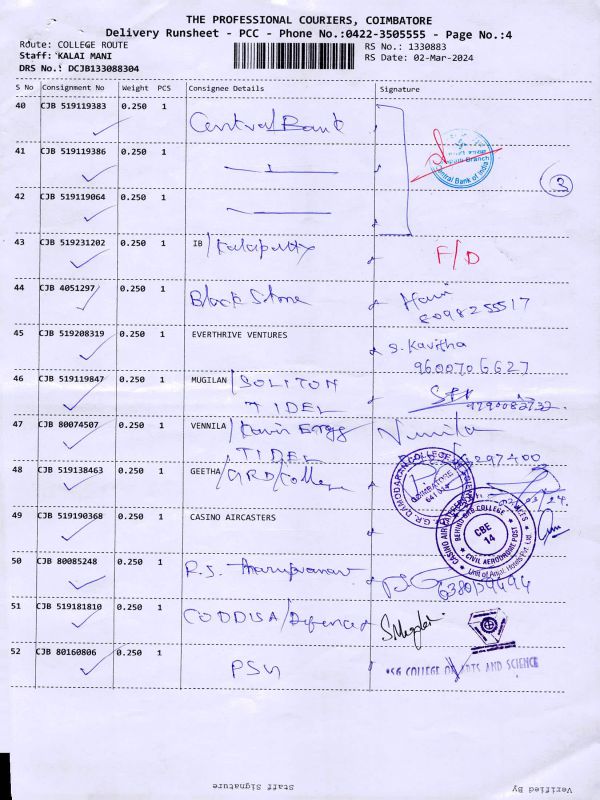 THE PROFESSIONAL COURIERS, COIMBATORE
Delivery Runsheet - PCC - Phone No.:0422-3505555 - Page No.:4
Route: COLLEGE ROUTE
RS No.: 1330883
Staff: KALAI MANI
RS Date: 02-Mar-2024
DRS No.: DCJB133088304
S No Consignment No Weight PCS Consignee Details Signature
40 CJB 519119383 0.250 1 Central Bank
41 CJB 519119386 0.250 1
Central Bank of India
3
42 CJB 519119064 0.250 1
43 CJB 519231202 0.250 1 IB/Kalapatty F/D
44 CJB 4051297 0.250 1 Black Stone Hari
8098255517
45 CJB 519208319 0.250 1 EVERTHRIVE VENTURES S. Kavitha
9600706627
46 CJB 519119847 0.250 1 MUGILAN/SOLITON
TIDEL
47 CJB 80074507 0.250 1 VENNILA/ Engg Vennila
TIDEL 297400
48 CJB 519138463 0.250 1 GEETHA/GRD/College
COIMBATORE
49 CJB 519190368 0.250 1 CASINO AIRCASTERS
BEHIND GRD COLLEGE
CBE
14
CIVIL AERODROME POST
Unit of Anjali Hotels Pvt. Ltd.
50 CJB 80085248 0.250 1 R.S.
51 CJB 519181810 0.250 1 CODDISA/Defence
52 CJB 80160806 0.250 1 PSG
SG COLLEGE OF ARTS AND SCIENCE
Staff Signature
Verified By